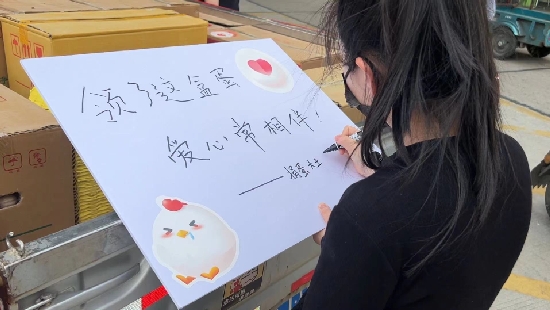 领了这盒蛋
爱心常相伴!